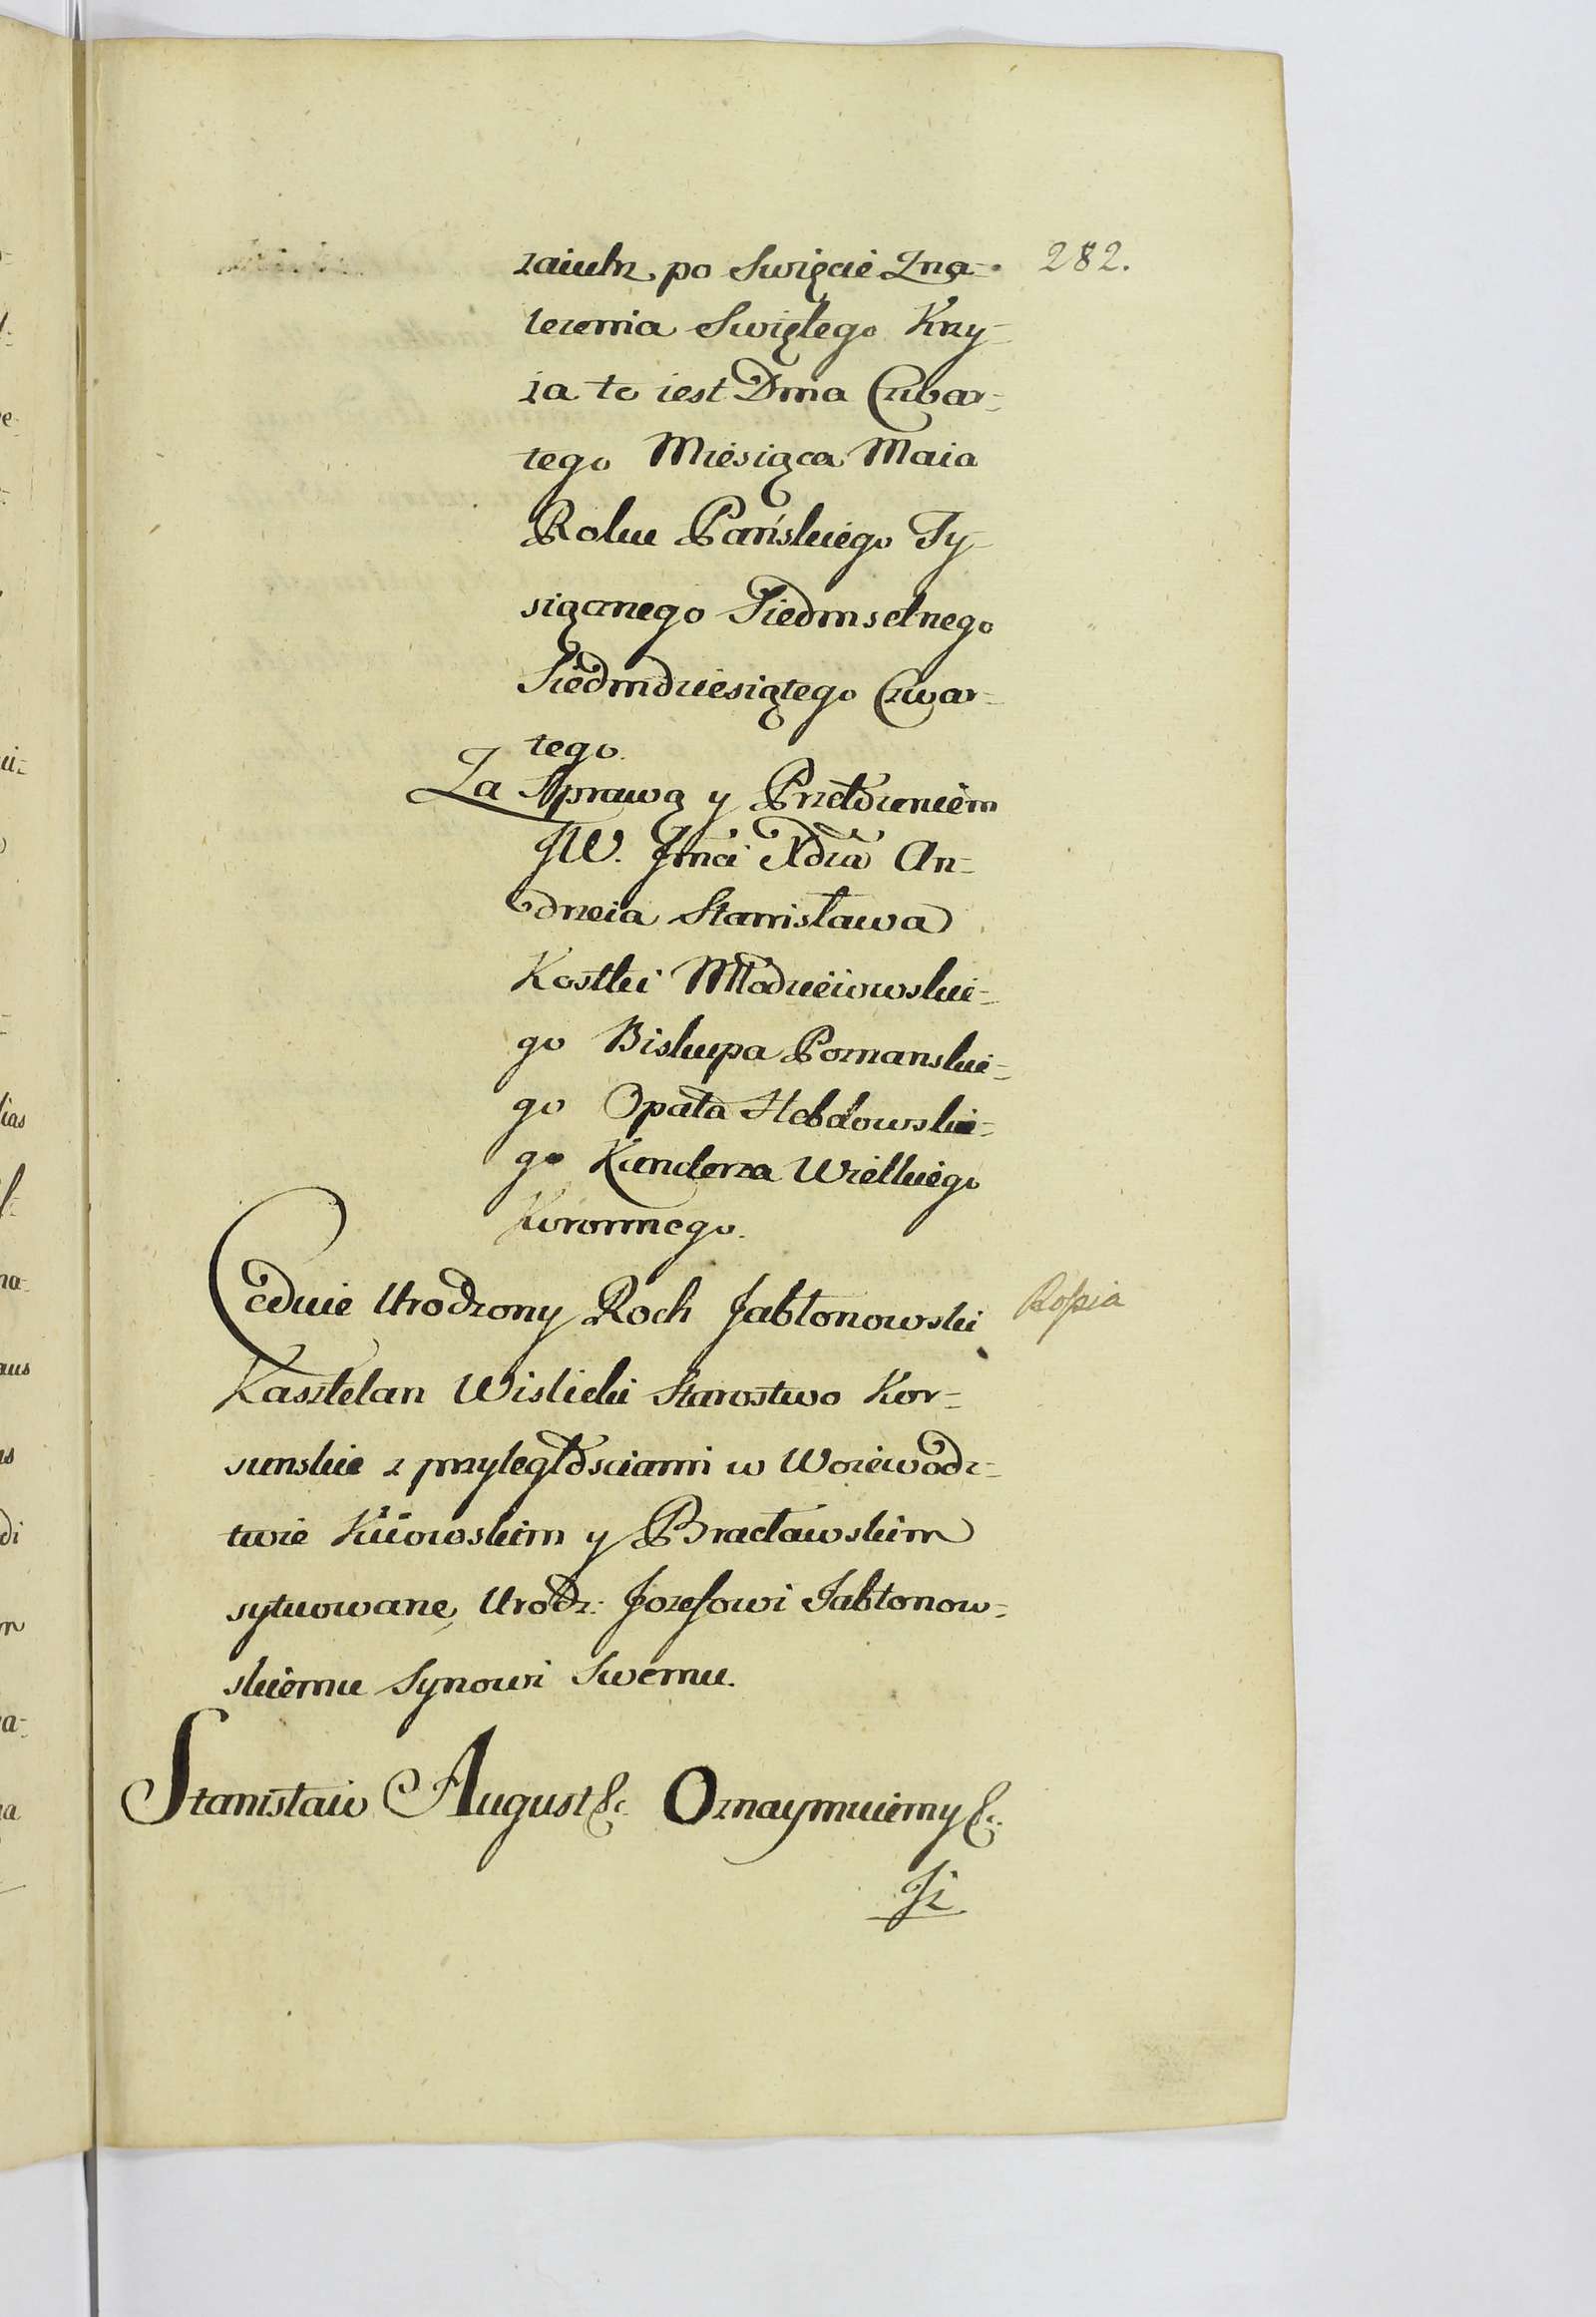 zaiutrz po Swięcie Zna= 282.
lezenia Swiętego Krzy=
ża to iest Dnia Czwar=
tego Miesiąca Maia
Roku Pańskiego Ty=
siącznego Siedmsetnego
Siedmdziesiątego Czwar=
tego.
Za Sprawą y Przełożeniem
JW. Jmci Xdza An=
drzeia Stanisława
Kostki Młodzieiowskie=
go Biskupa Poznanskie=
go Opata Hebdowskie=
go Kanclerza Wielkiego
Koronnego.
Ceduie Urodzony Roch Jabłonowski Rossia
Kasztelan Wislicki Starostwo Kor=
sunskie z przyległosciami w Woiewodz=
twie Kiiowskim y Bracławskim
sytuowane, Urodz: Jozefowi Jabłonow=
skiemu Synowi Swemu.
Stanisław August &c. Oznaymuiemy &c.
Jż